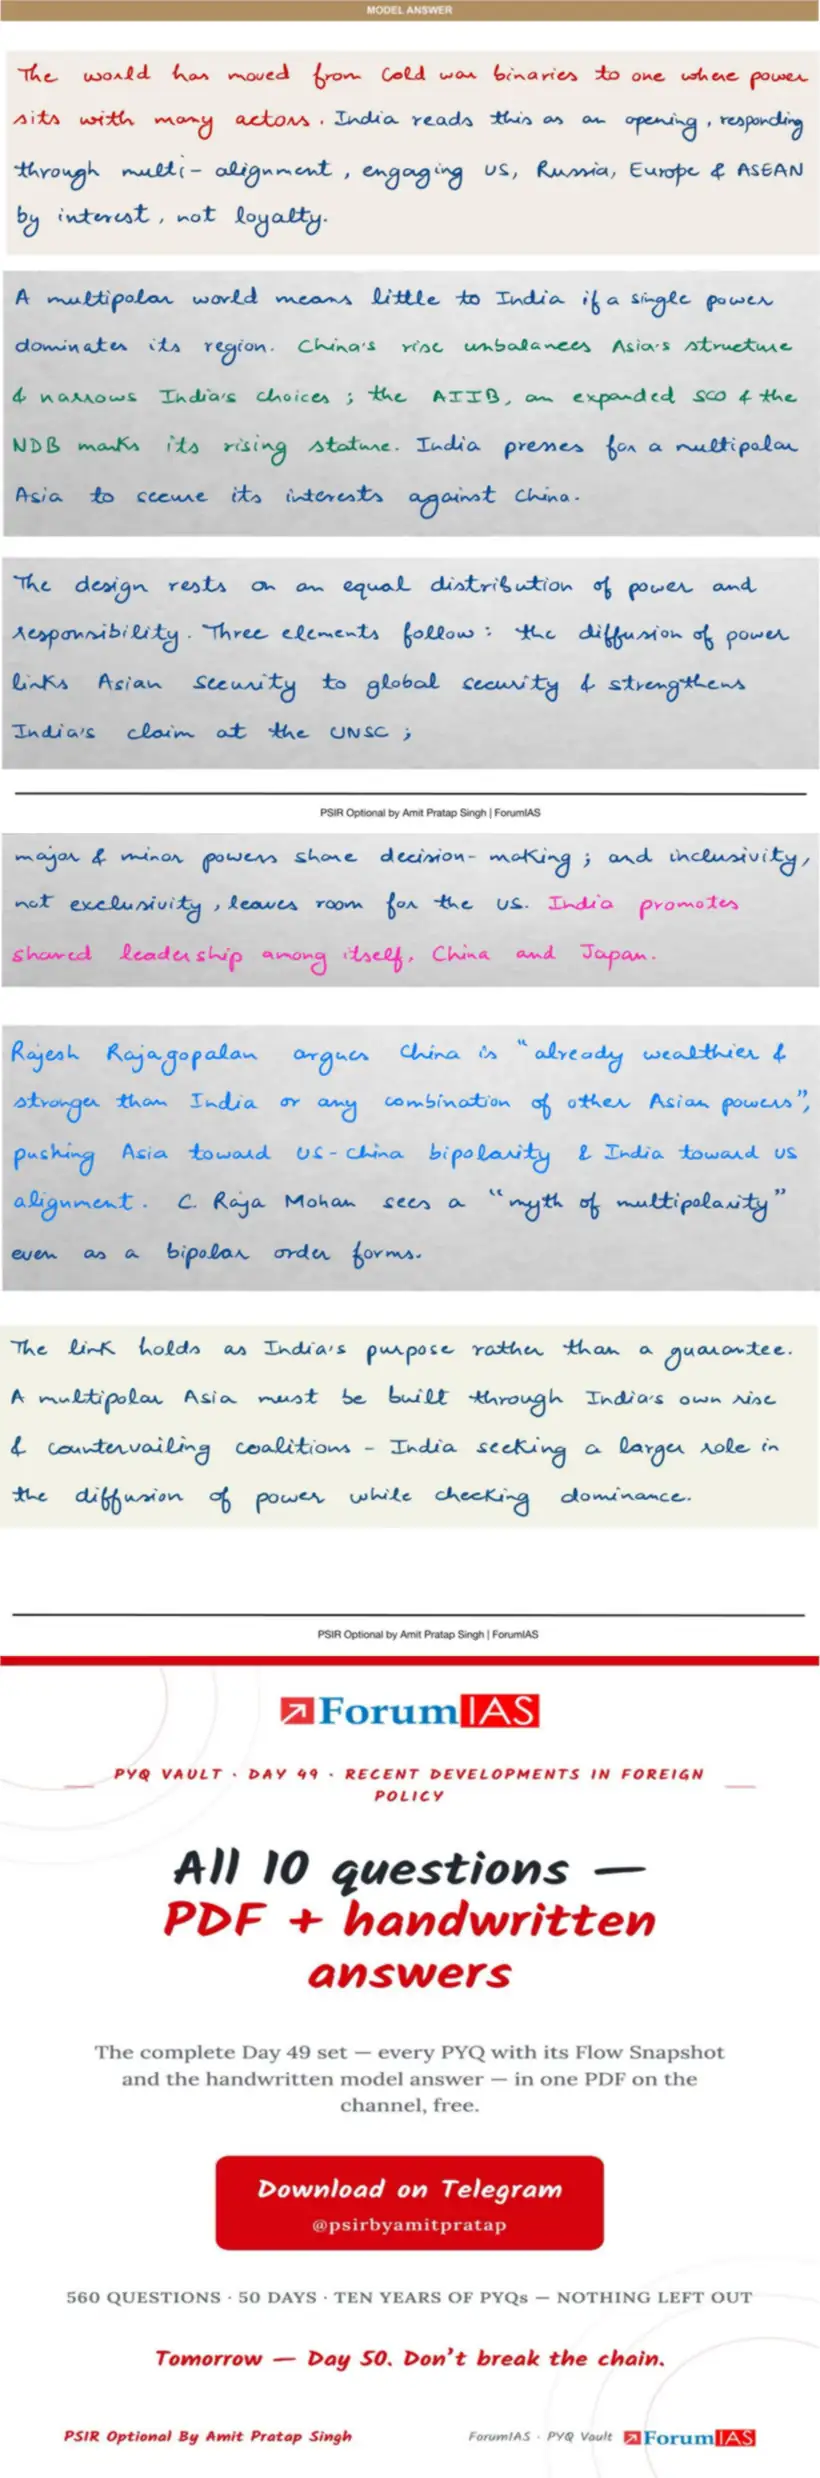 MODEL ANSWER
The world has moved from Cold war binaries to one where power
sits with many actors. India reads this as an opening, responding
through multi- alignment, engaging US, Russia, Europe & ASEAN
by interest, not loyalty.
A multipolar world means little to India if a single power
dominates its region. China's rise unbalances Asia's structure
& narrows India's choices; the AIIB, an expanded SCO & the
NDB marks its rising stature. India presses for a multipolar
Asia to secure its interests against China.
The design rests on an equal distribution of power and
responsibility. Three elements follow: the diffusion of power
links Asian security to global security & strengthens
India's claim at the UNSC;
PSIR Optional by Amit Pratap Singh | ForumIAS
major & minor powers share decision-making; and inclusivity,
not exclusivity, leaves room for the US. India promotes
shared leadership among itself, China and Japan.
Rajesh Rajagopalan argues China is "already wealthier &
stronger than India or any combination of other Asian powers",
pushing Asia toward US-China bipolarity & India toward US
alignment. C. Raja Mohan sees a "myth of multipolarity"
even as a bipolar order forms.
The link holds as India's purpose rather than a guarantee.
A multipolar Asia must be built through India's own rise
& countervailing coalitions - India seeking a larger role in
the diffusion of power while checking dominance.
PSIR Optional by Amit Pratap Singh | ForumIAS
ForumIAS
PYQ VAULT · DAY 49 · RECENT DEVELOPMENTS IN FOREIGN
POLICY
All 10 questions —
PDF + handwritten
answers
The complete Day 49 set — every PYQ with its Flow Snapshot
and the handwritten model answer — in one PDF on the
channel, free.
Download on Telegram
@psirbyamitpratap
560 QUESTIONS · 50 DAYS · TEN YEARS OF PYQs — NOTHING LEFT OUT
Tomorrow — Day 50. Don't break the chain.
PSIR Optional By Amit Pratap Singh
ForumIAS · PYQ Vault ForumIAS